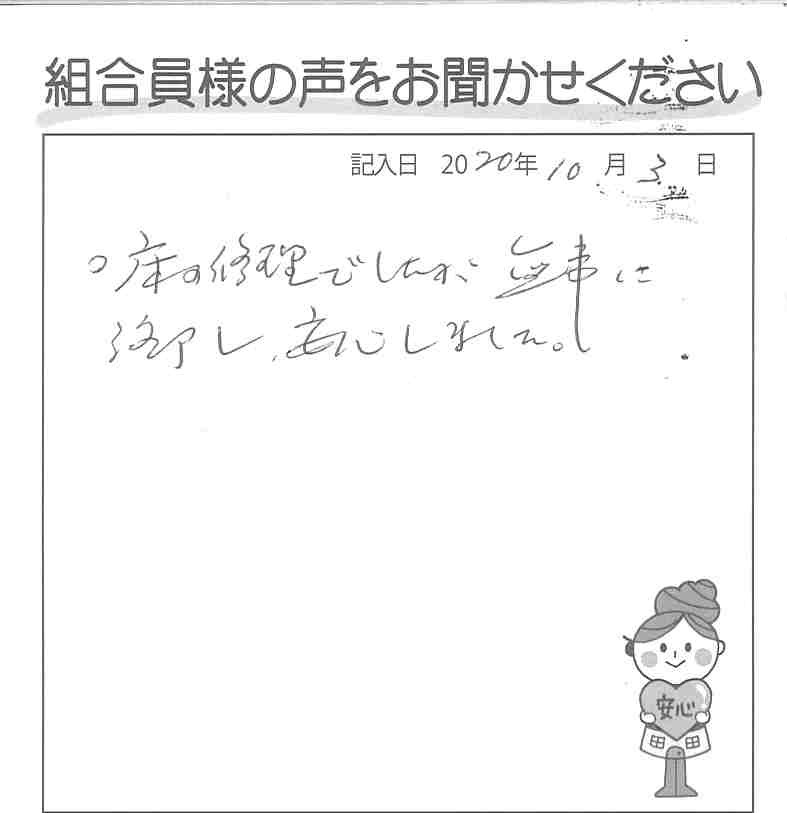 組合員様の声をお聞かせください
記入日 2020年10月3日
○床の修理でしたが 無事に
終了し、安心しました。
安心